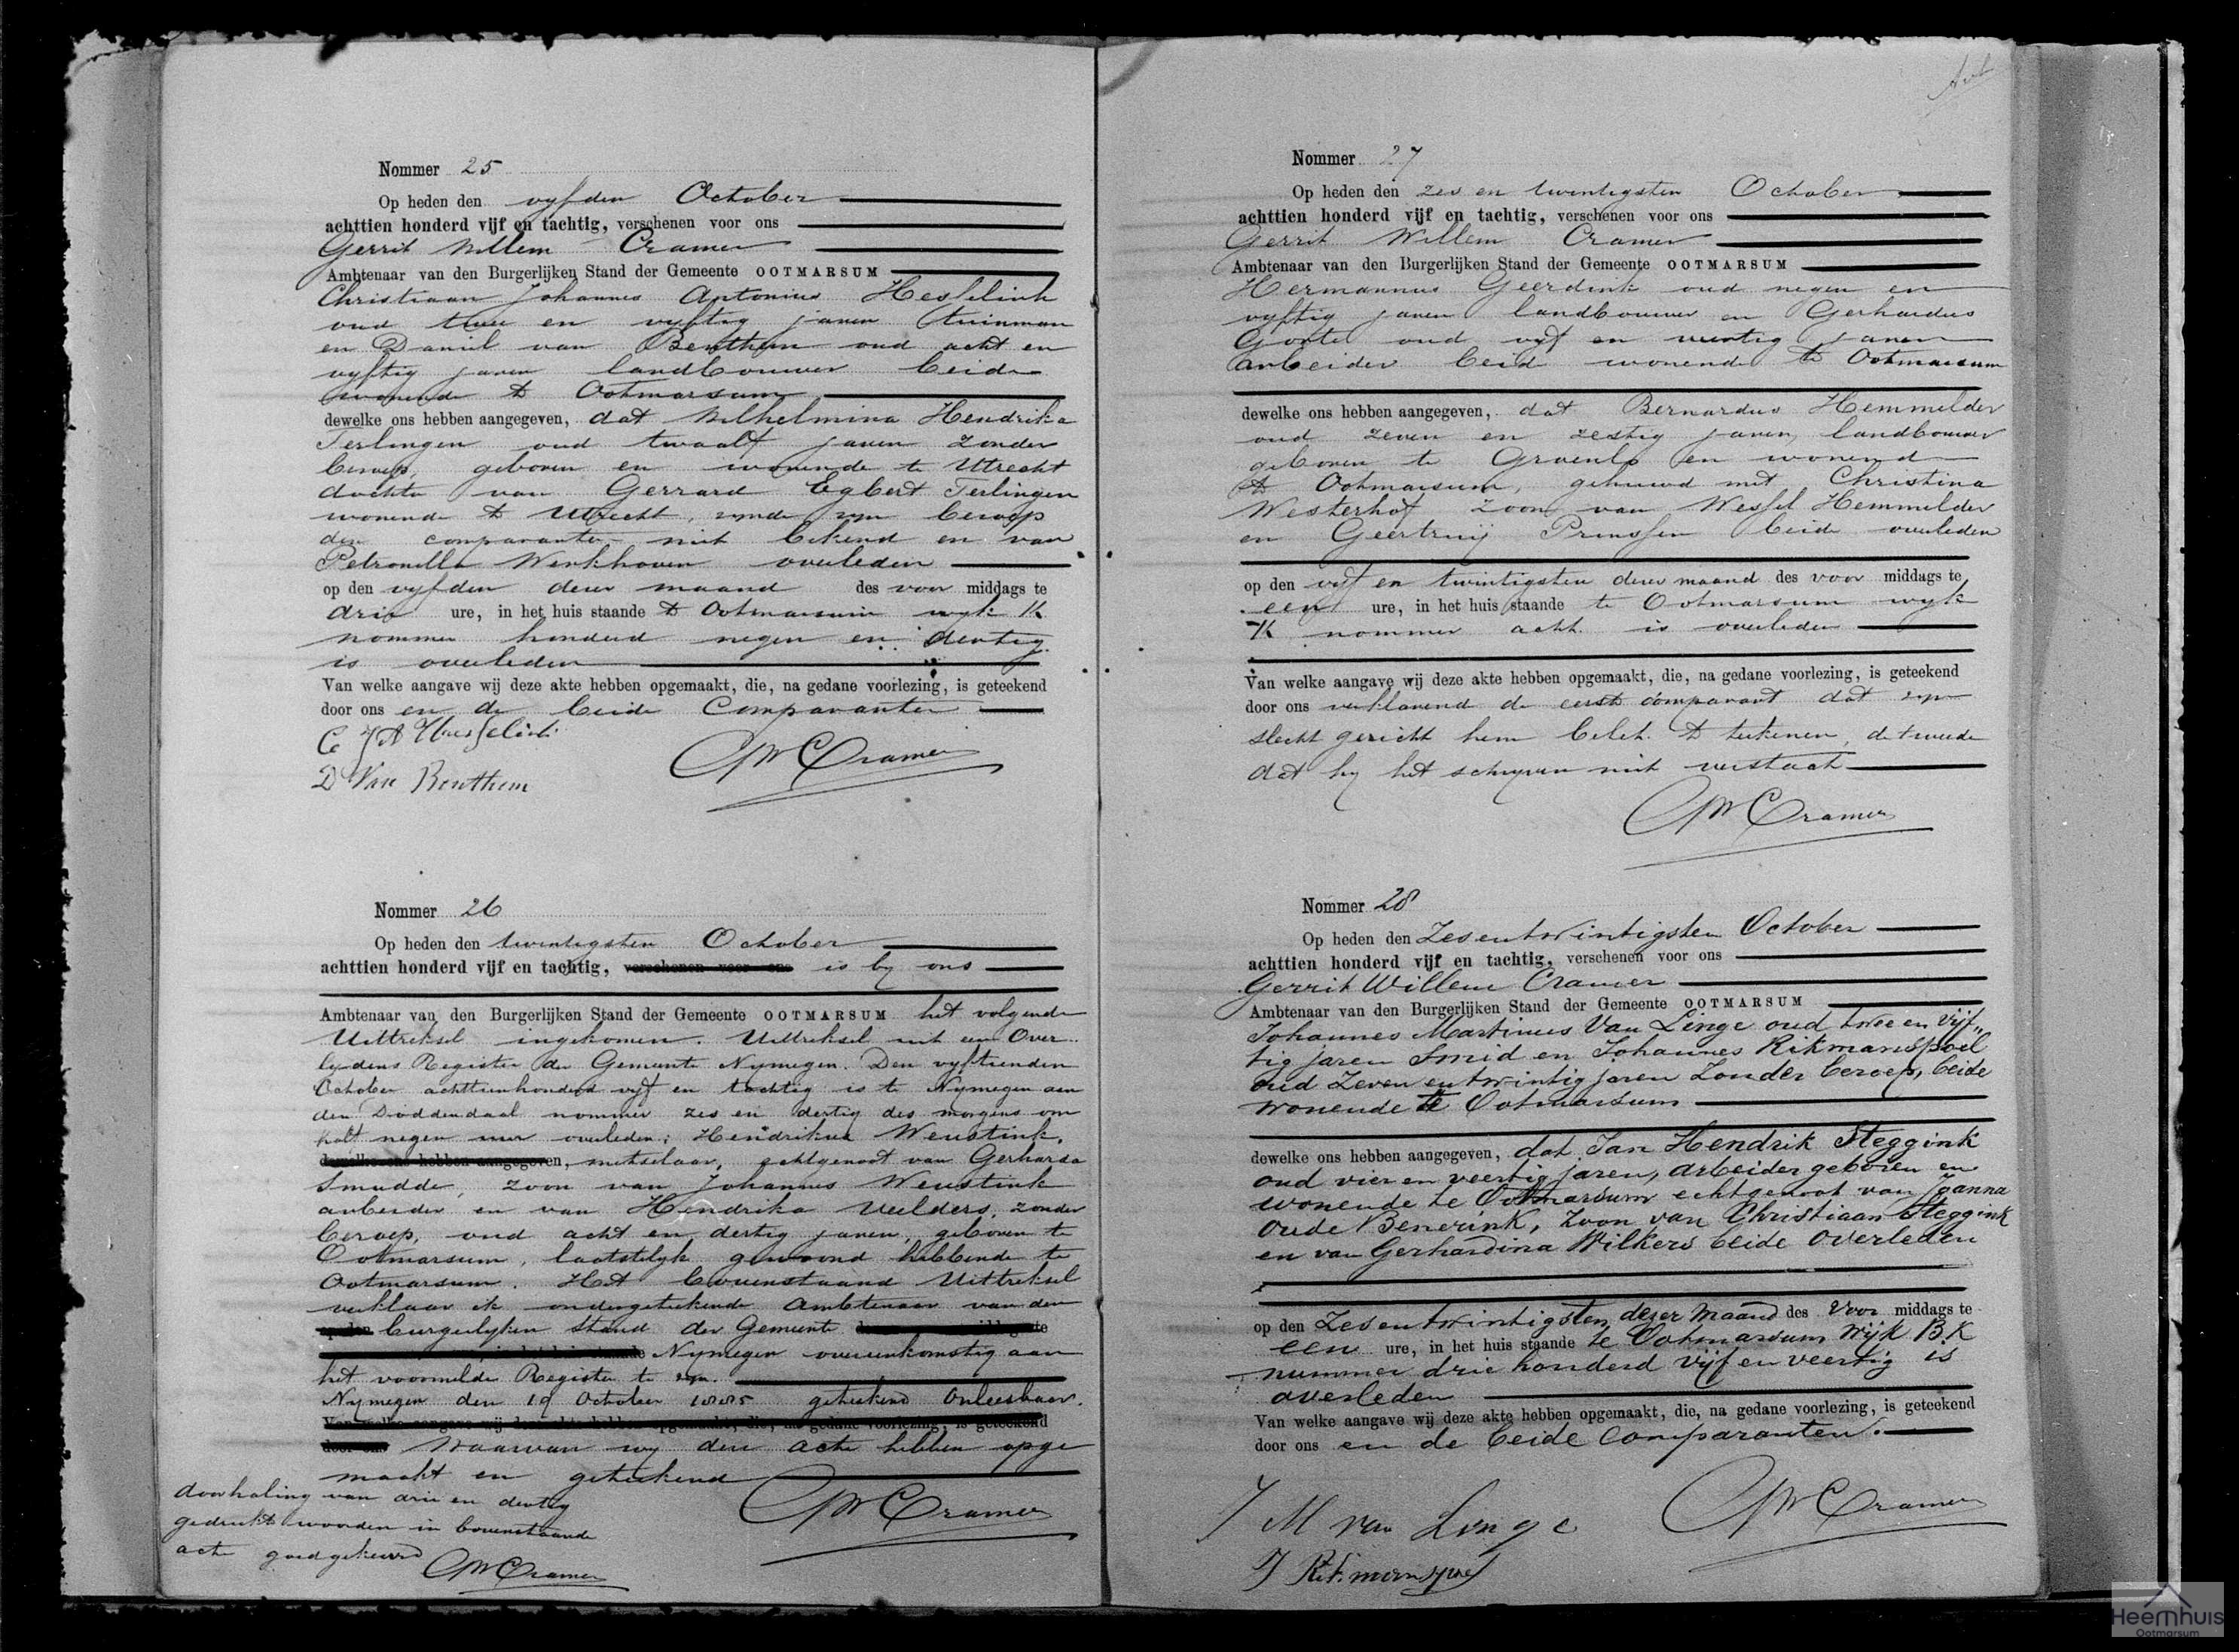 Nommer 25
Op heden den vyfden October
achttien honderd vijf en tachtig, verschenen voor ons
Gerrit Willem Cramer
Ambtenaar van den Burgerlijken Stand der Gemeente OOTMARSUM
Christiaan Johannes Antonius Hesselink
oud twee en vyftig jaren tuinman
en Daniel van Benthem oud acht en
vyftig jaren landbouwer beide
wonende te Ootmarsum
dewelke ons hebben aangegeven, dat Wilhelmina Hendrika
Terlingen oud twaalf jaren zonder
beroep, geboren en wonende te Utrecht
dochter van Gerrard Egbert Terlingen
wonende te Utrecht, zynde zyn beroep
den comparanten niet bekend en van
Petronella Werkhoven overleden
op den vyfden dezer maand des voor middags te
drie ure, in het huis staande te Ootmarsum wyk K
nommer honderd negen en dertig
is overleden
Van welke aangave wij deze akte hebben opgemaakt, die, na gedane voorlezing, is geteekend
door ons en de beide Comparanten
C J A Hesselink
D Van Benthem
GWCramer
Nommer 26
Op heden den twentigsten October
achttien honderd vijf en tachtig, verschenen voor ons is by ons
Ambtenaar van den Burgerlijken Stand der Gemeente OOTMARSUM het volgende
Uittreksel ingekomen. Uittreksel uit een Over
lydens Register der Gemeente Nymegen. Den vyftienden
October achttienhonderd vyf en tachtig is te Nymegen aan
den Doddendaal nommer zes en dertig des morgens om
half negen uur overleden: Hendrikus Weustink,
dewelke ons hebben aangegeven, metselaar, echtgenoot van Gerharda
Smudde, zoon van Johannes Weustink
arbeider en van Hendrika Velders, zonder
beroep, oud acht en dertig jaren, geboren te
Ootmarsum, laatstelyk gewoond hebbende te
Ootmarsum. Het bovenstaand Uittreksel
verklaar ik ondergeteekende Ambtenaar van den
op den burgerlyken stand der Gemeente te
Nymegen overeenkomstig aan
het voormelde Register te zyn.
Nymegen den 19 October 1885 geteekend Onleesbaar.
Van welke aangave wij deze akte hebben opgemaakt, die, na gedane voorlezing, is geteekend
door ons Waarvan wy deze acte hebben opge
maakt en geteekend
doorhaling van drie en dertig
gedrukte woorden in bovenstaande
acte goedgekeurd GWCramer
GWCramer
Nommer 27
Op heden den zes en twintigsten October
achttien honderd vijf en tachtig, verschenen voor ons
Gerrit Willem Cramer
Ambtenaar van den Burgerlijken Stand der Gemeente OOTMARSUM
Hermannus Geerdink oud negen en
vyftig jaren landbouwer en Gerhardus
oud vyf en jaren
arbeider beide wonende te Ootmarsum
dewelke ons hebben aangegeven, dat Bernardus Hemmelder
oud zeven en zestig jaren, landbouwer
geboren te Groenlo en wonend
te Ootmarsum, gehuwd met Christina
Westerhof zoon van Wessel Hemmelder
en Geertruij Prinssen beide overleden
op den vyf en twintigsten dezer maand des voor middags te
een ure, in het huis staande te Ootmarsum wyk
K nommer acht is overleden
Van welke aangave wij deze akte hebben opgemaakt, die, na gedane voorlezing, is geteekend
door ons verklarend de eerste comparant dat zyn
slecht gezicht hem belet te teekenen, de tweede
dat hy het schryven niet verstaat
GWCramer
Nommer 28
Op heden den Zesentwintigsten October
achttien honderd vijf en tachtig, verschenen voor ons
Gerrit Willem Cramer
Ambtenaar van den Burgerlijken Stand der Gemeente OOTMARSUM
Johannes Martinus Van Linge oud twee en vijf„
tig jaren Smid en Johannes Rikmanspoel
oud Zeven en twintig jaren Zonder beroep, beide
wonende te Ootmarsum
dewelke ons hebben aangegeven, dat Jan Hendrik Steggink
oud vier en veertig jaren, arbeider geboren en
wonende te Ootmarsum echtgenoot van Joanna
Oude Benerink, Zoon van Christiaan Steggink
en van Gerhardina Wilkers beide overleden
op den Zesentwintigsten dezer Maand des Voor middags te
een ure, in het huis staande te Ootmarsum Wijk B.K
nummer drie honderd vijf en veertig is
overleden
Van welke aangave wij deze akte hebben opgemaakt, die, na gedane voorlezing, is geteekend
door ons en de beide Comparanten.
J M van Linge
GWCramer
J Rikmanspoel
Heemhuis
Ootmarsum